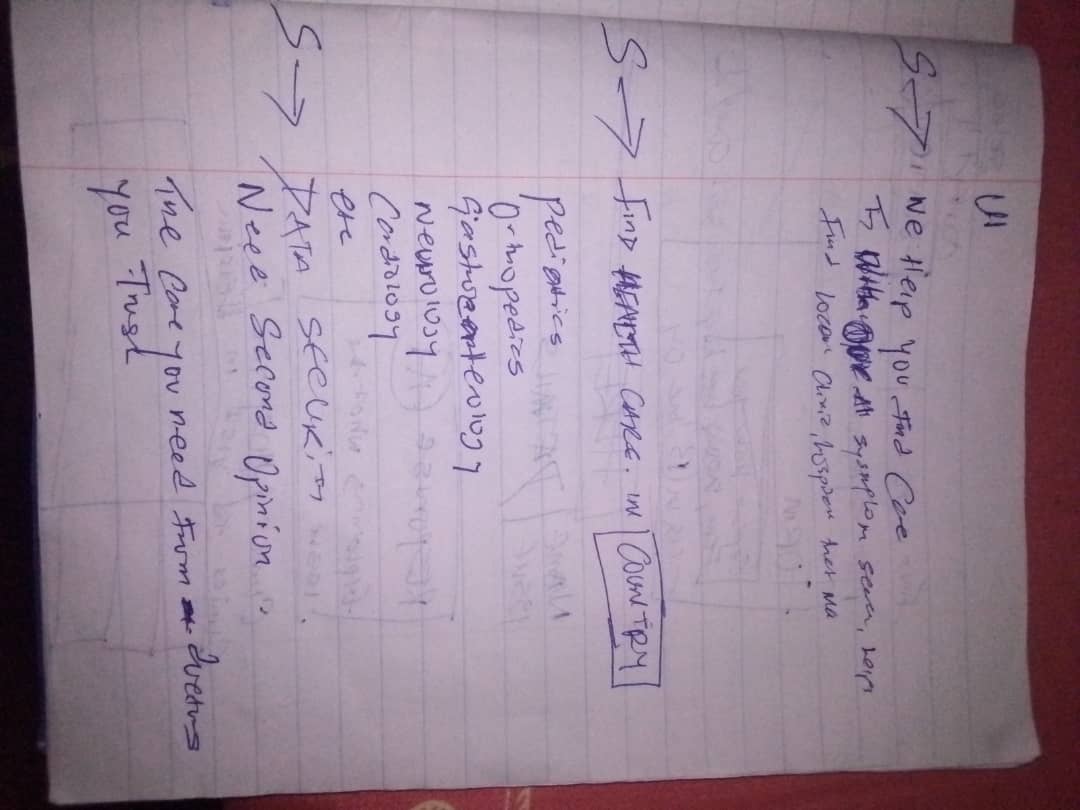 UI
S → We Help you Find Care
AI symptom, helps
Find local Clinic, hospital that Ma
S → FIND HEALTH CARE. IN COUNTRY
pediatrics
Orthopedics
Gastroenterology
Neurology
Cardiology
etc
S → DATA SECURITY
Need Second Opinion
The Care you need From
you Trust